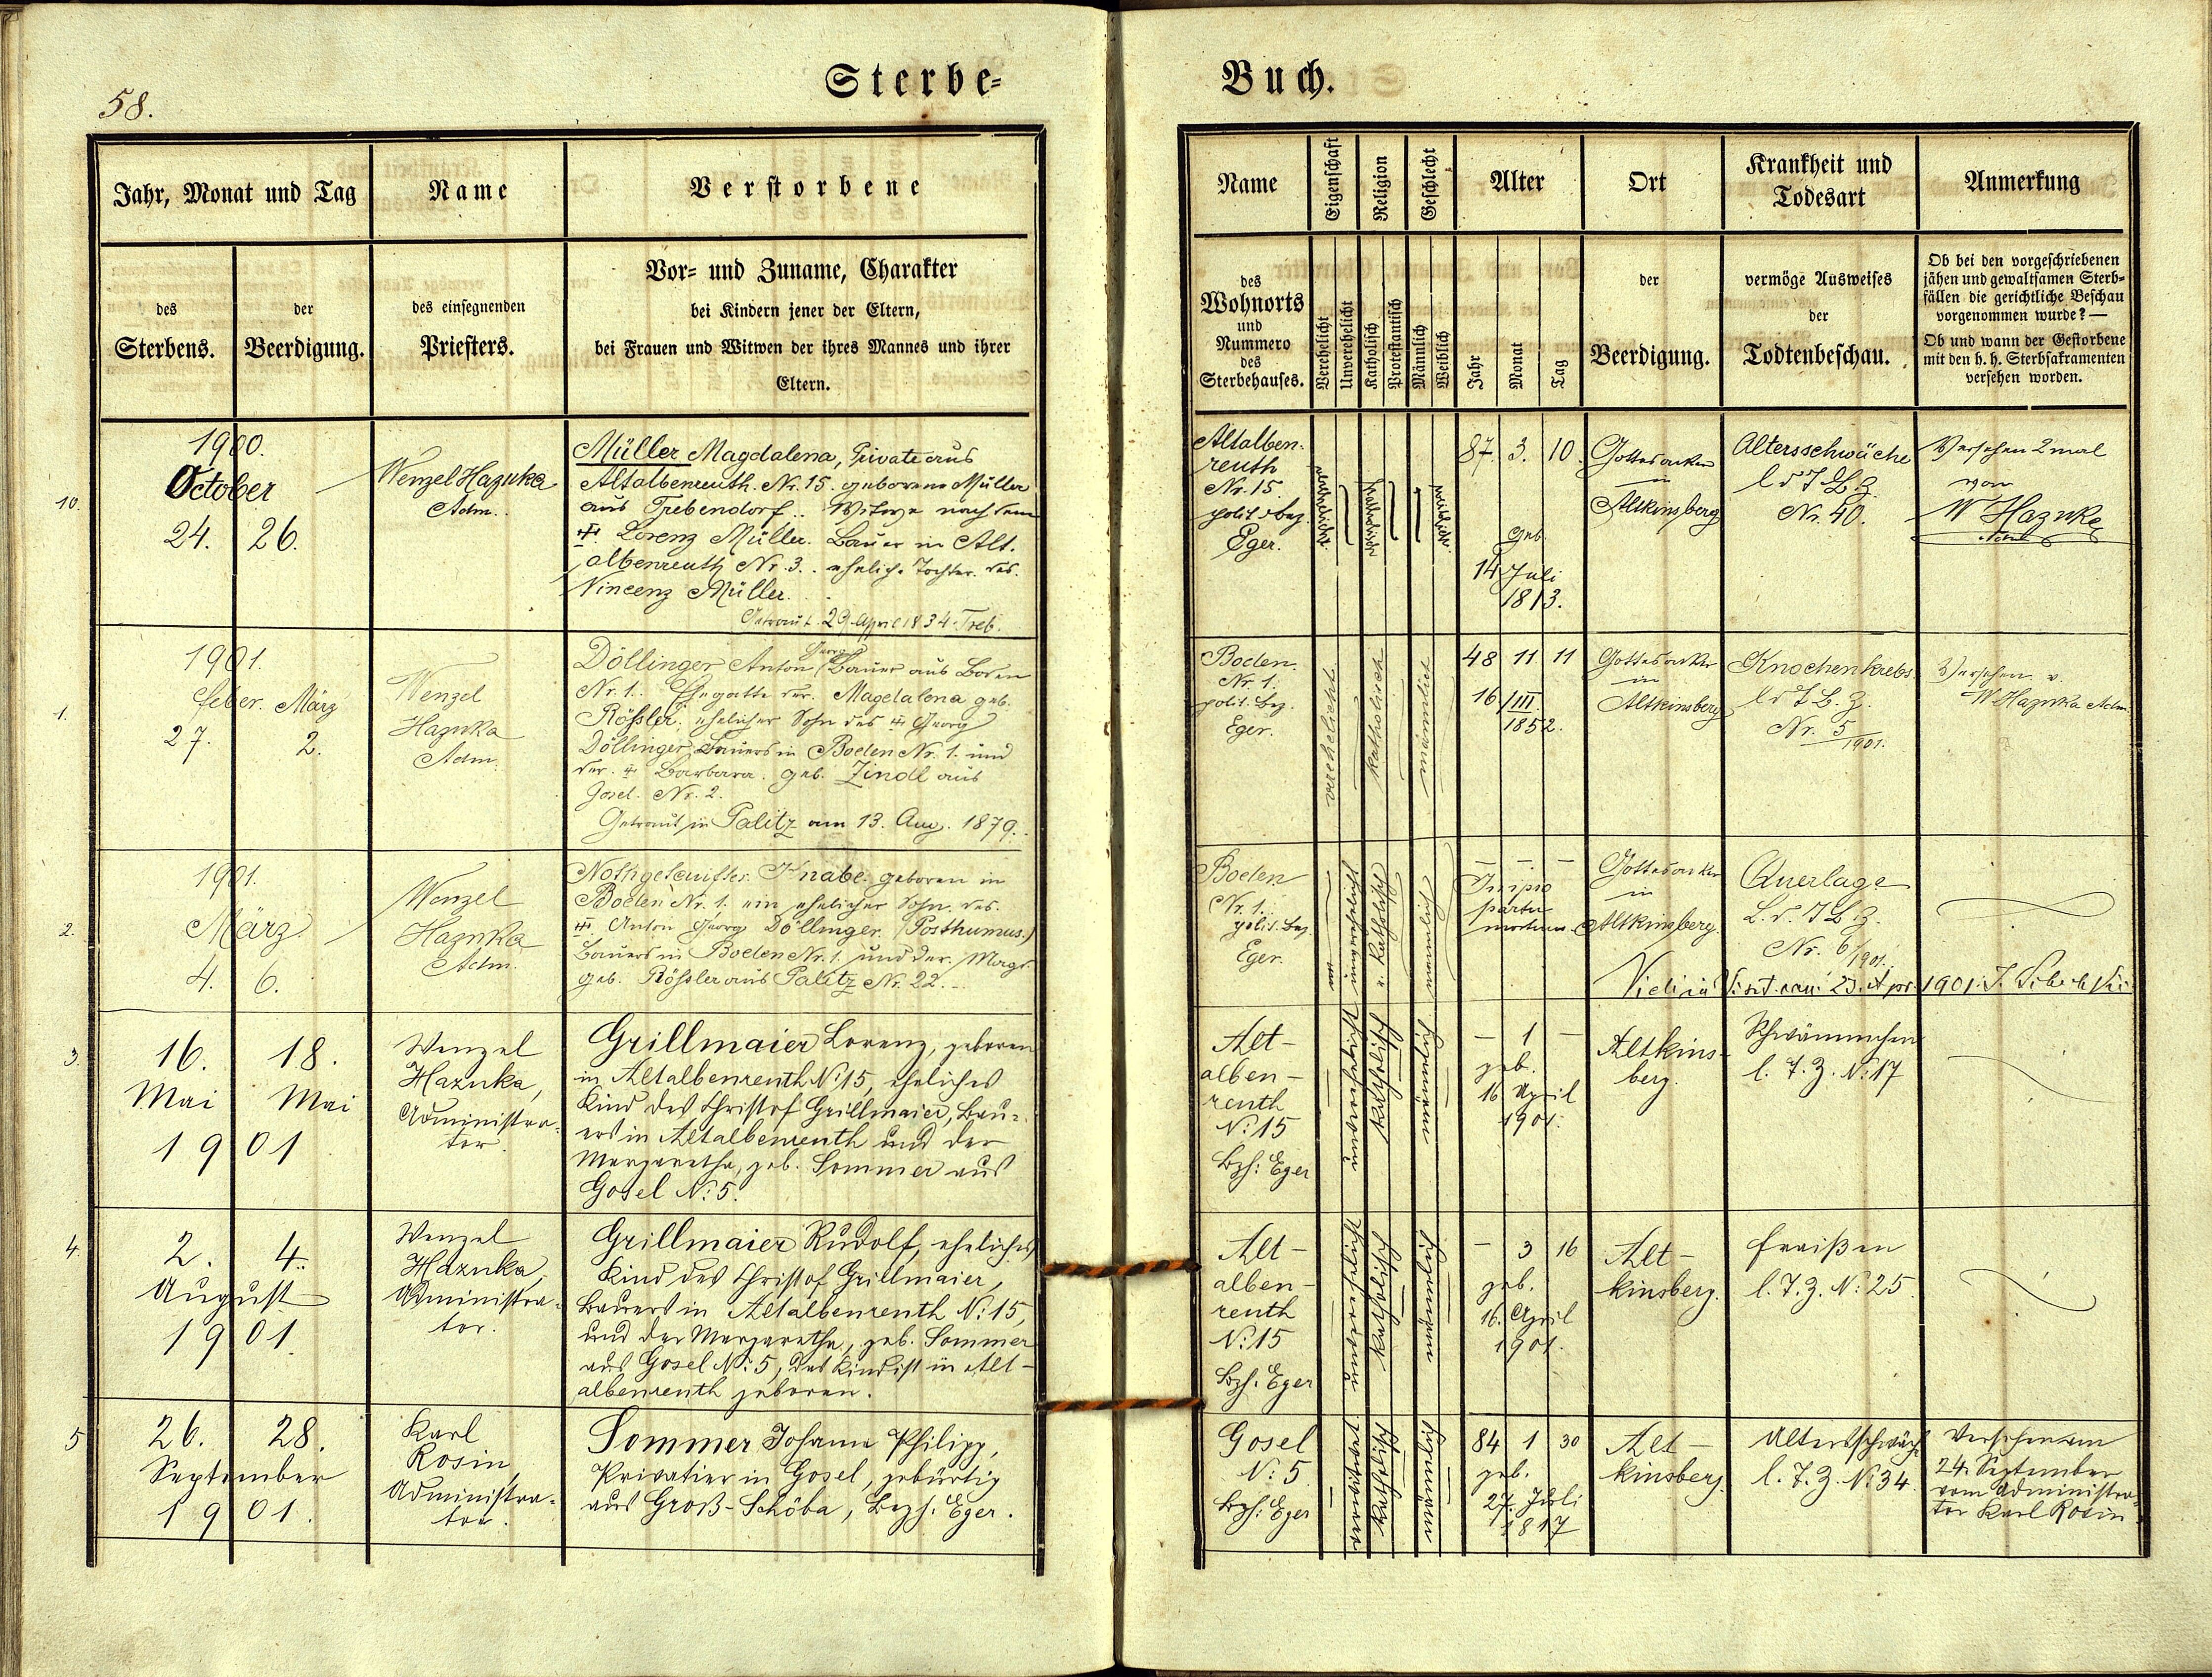 58.
Sterbe-
Buch.
Jahr, Monat und Tag
Name
Verstorbene
des
Sterbens.
der
Beerdigung.
des einsegnenden
Priesters.
Vor- und Zuname, Charakter
bei Kindern jener der Eltern,
bei Frauen und Witwen der ihres Mannes und ihrer
Eltern.
Name
Eigenschaft
Religion
Geschlecht
Alter
Ort
Krankheit und
Todesart
Anmerkung
des
Wohnorts
und
Nummero
des
Sterbehauses.
Verehelicht
Unverehelicht
Katholisch
Protestantisch
Männlich
Weiblich
Jahr
Monat
Tag
der
Beerdigung.
vermöge Ausweises
der
Todtenbeschau.
Ob bei den vorgeschriebenen
jähen und gewaltsamen Sterb-
fällen die gerichtliche Beschau
vorgenommen wurde? —
Ob und wann der Gestorbene
mit den h. h. Sterbsakramenten
versehen worden.
10.
1900.
October
24. 26.
Wenzel Hazuka
Adm.
Müller Magdalena, Private aus
Altalbenreuth. Nr. 15. geborene Müller
aus Trebendorf.. Witwe nach dem
† Lorenz Müller. Bauer in Alt.
albenreuth Nr. 3.. eheliche Tochter. des.
Vincenz Müller.
Getraut. 29. April 1834. Treb.
Altalben.
reuth
Nr. 15.
polit. Bez.
Eger.
87. 3. 10.
geb.
14 Juli
1813.
Gottesacker
in
Altkinsberg
Altersschwäche
l d T B Z
Nr. 40.
Versehen 2 mal
von
W Hazuka
Adm
1.
1901.
Feber. März
27. 2.
Wenzel
Hazuka
Adm.
Georg
Döllinger Anton Bauer aus Boden
Nr. 1.. Ehegatte der. Magdalena geb.
Rößler. ehelicher Sohn des † Georg
Döllinger, Bauers in Boden Nr. 1. und
der. † Barbara. geb. Zindl aus
Gosel. Nr. 2.
Getraut in Palitz am 13. Aug. 1879.
Boden.
Nr. 1.
polit. Bez.
Eger.
verehelicht
katholisch
männlich
48 11 11
16/III.
1852.
Gottesacker
in
Altkinsberg
Knochenkrebs
l d T B. Z.
Nr. 5
1901.
Versehen v.
W Hazuka Adm.
2.
1901.
März
4. 6.
Wenzel
Hazuka
Adm.
Nothgetaufter. Knabe. geboren in
Boden Nr. 1. ein ehelicher Sohn. des.
† Anton Georg Döllinger. (Posthumus.)
Bauers in Boden Nr. 1. und der. Magd.
geb. Rößler aus Palitz Nr. 22.
Boden
Nr. 1.
polit. Bez.
Eger.
unverehelicht
katholisch
männlich
— — —
partu
mortuus.
Gottesacker
in
Altkinsberg.
Querlage
L. d. T B. Z.
Nr. 6/1901.
1901.
3.
16. 18.
Mai Mai
1901
Wenzel
Hazuka,
Administra-
tor.
Grillmaier Lorenz, geboren
in Altalbenreuth N: 15, eheliches
Kind des Christof Grillmaier, Bau-
ers in Altalbenreuth und der
Margaretha, geb. Sommer aus
Gosel N: 5.
Alt-
alben-
reuth
N: 15
Bzh: Eger
unverehelicht
katholisch
männlich
— 1 —
geb.
16 April
1901.
Altkins-
berg.
Schwämmchen
l. T. Z. N: 17
4.
2. 4.
August
1901.
Wenzel
Hazuka,
Administra-
tor.
Grillmaier Rudolf, eheliches
Kind des Christof Grillmaier,
Bauers in Altalbenreuth N: 15,
und der Margaretha, geb. Sommer
aus Gosel N: 5, das Kind ist in Alt-
albenreuth geboren.
Alt-
alben-
reuth
N: 15
Bzh. Eger
unverehelicht
katholisch
männlich
— 3 16
geb.
16. April
1901.
Alt-
kinsberg.
Fraißen
l. T. Z. N: 25.
5
26. 28.
September
1901.
Karl
Rosin,
Administra-
tor.
Sommer Johann Philipp,
Privatier in Gosel, gebürtig
aus Groß-Schöba, Bezh. Eger.
Gosel
N: 5
Bzh: Eger
verwitwet
katholisch
männlich
84 1 30
geb.
27. Juli
1817
Alt-
kinsberg.
Altersschwäche
l. T. Z. N: 34.
Versehen am
24. September
vom Administra-
tor Karl Rosin